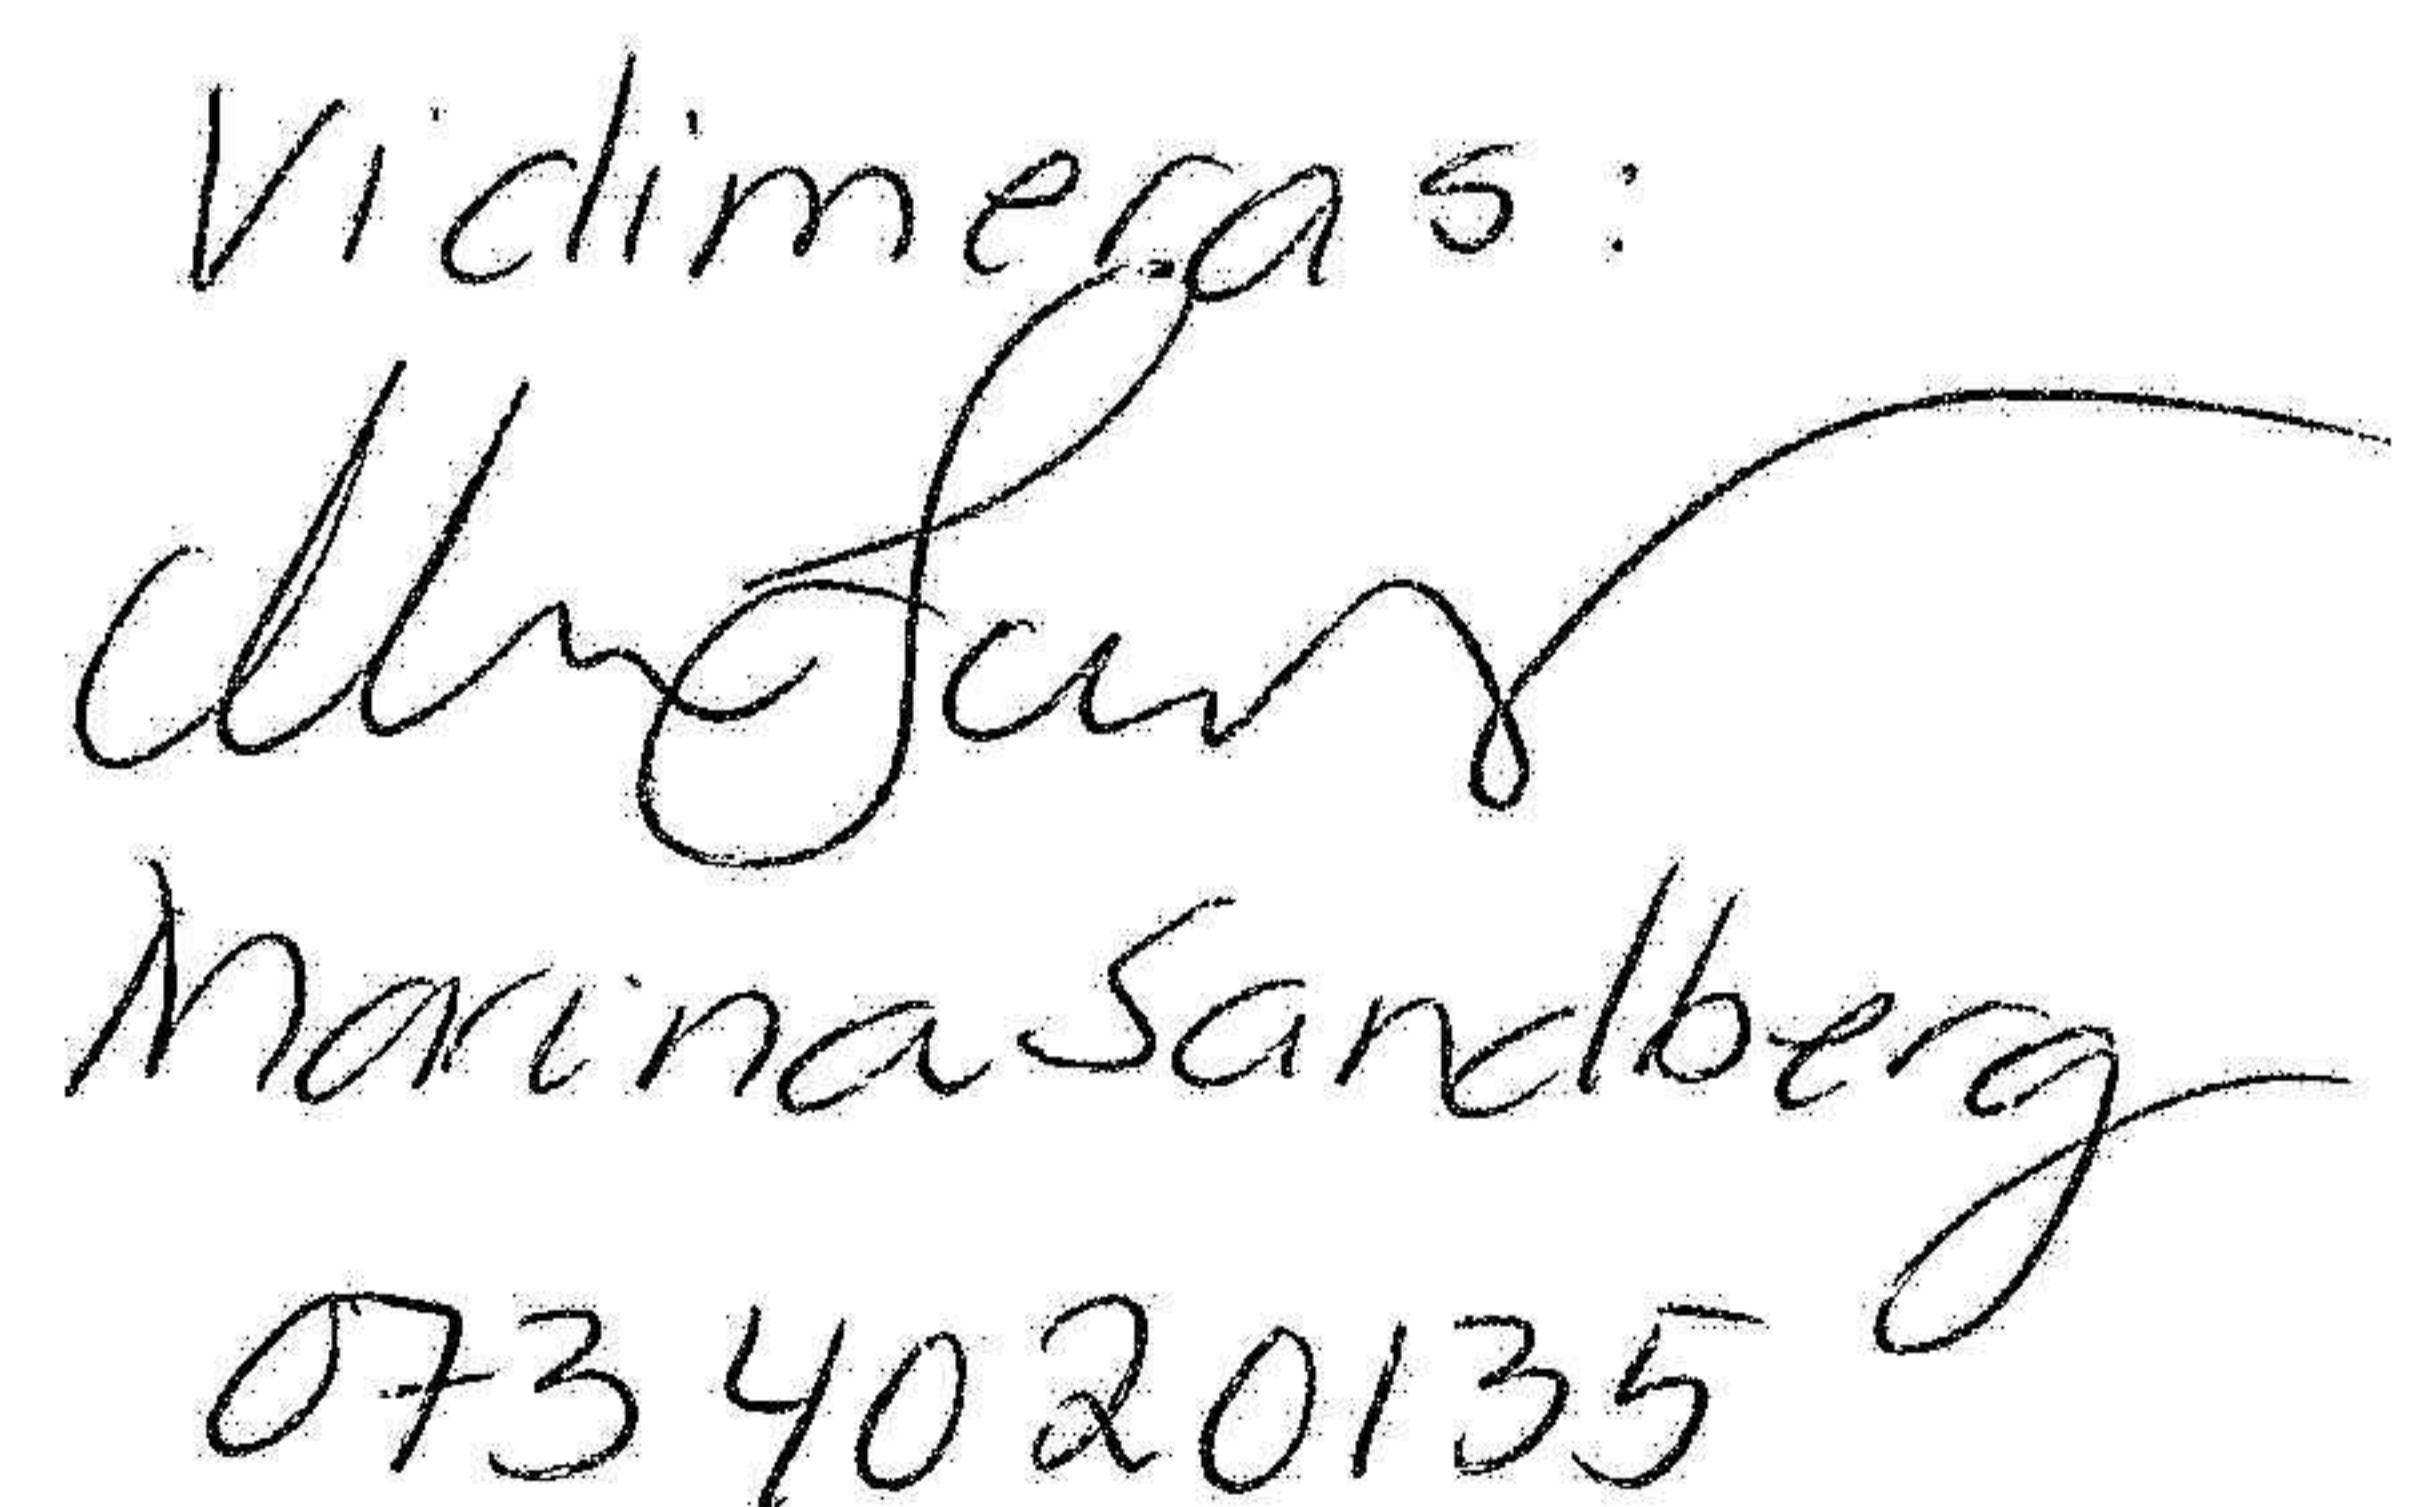 Vidimeras:
Marina Sandberg
073 4020135